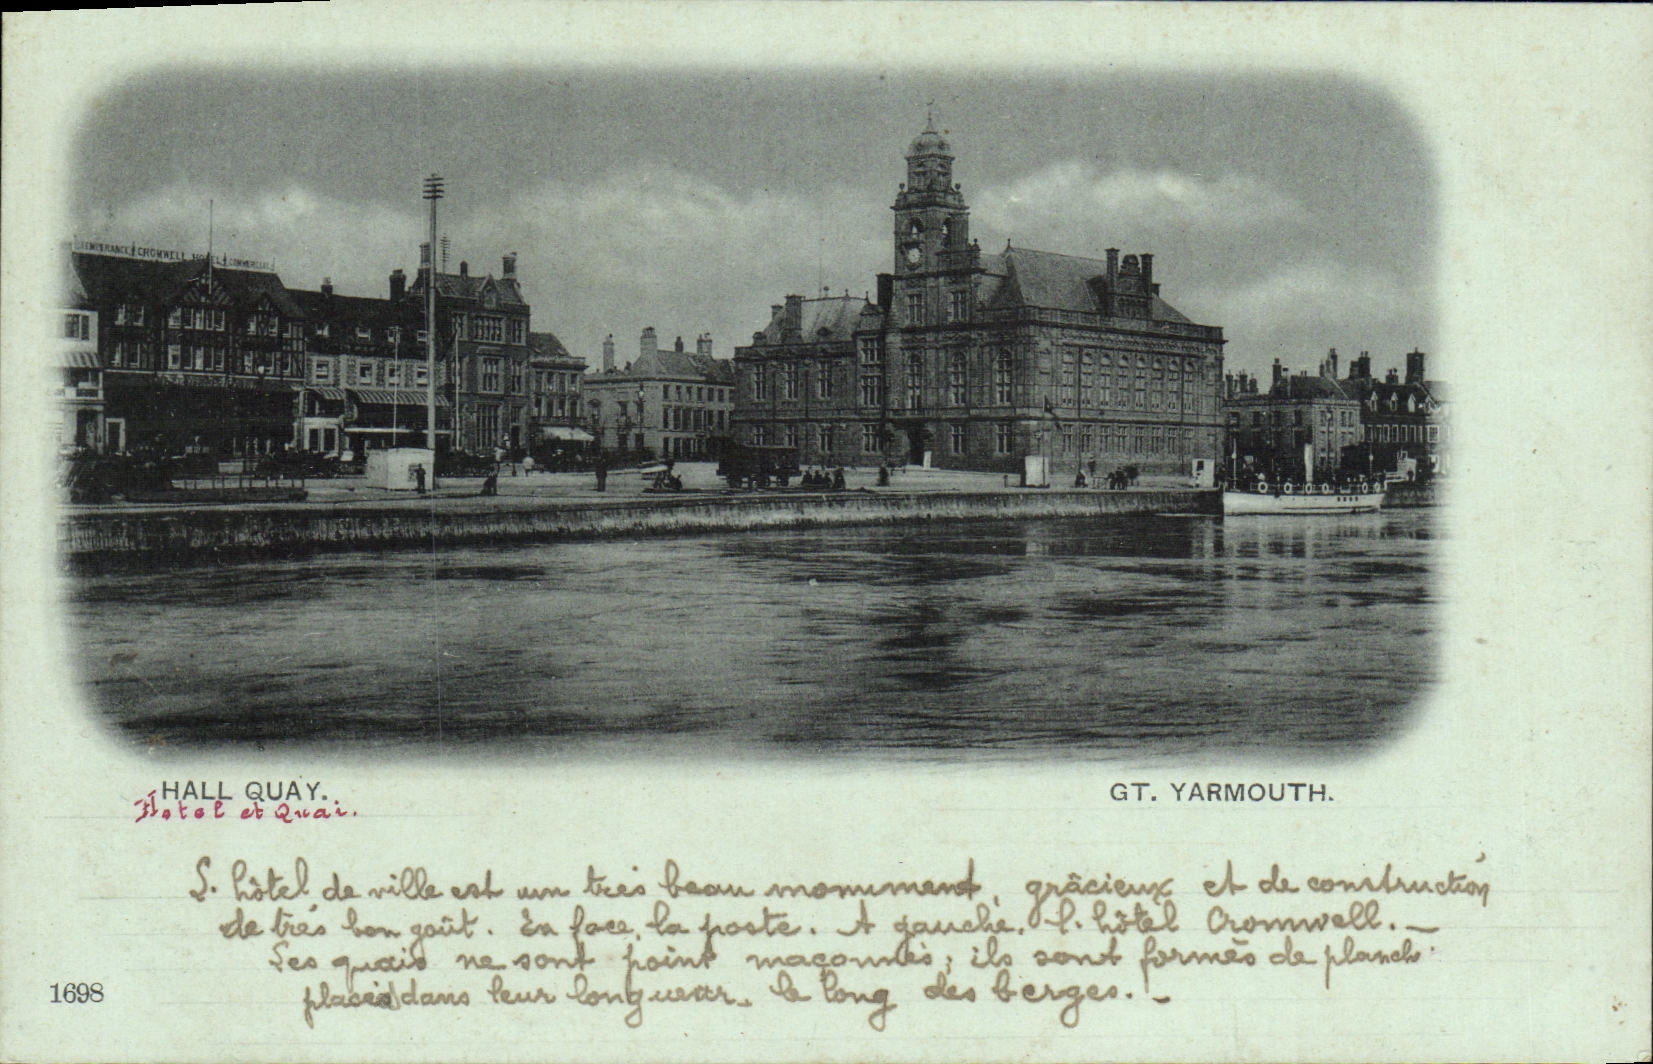 TEMPERANCE CROMWELL HOTEL COMMERCIAL
HALL QUAY.
GT. YARMOUTH.
Hotel et Quai.
L. hôtel de ville est un très beau monument, grâcieux et de construction
de très bon goût. En face, la poste. A gauche. l. hôtel Cromwell. —
Les quais ne sont point maçonnés; ils sont formés de planch
placés dans leur longueur, le long des berges. —
1698